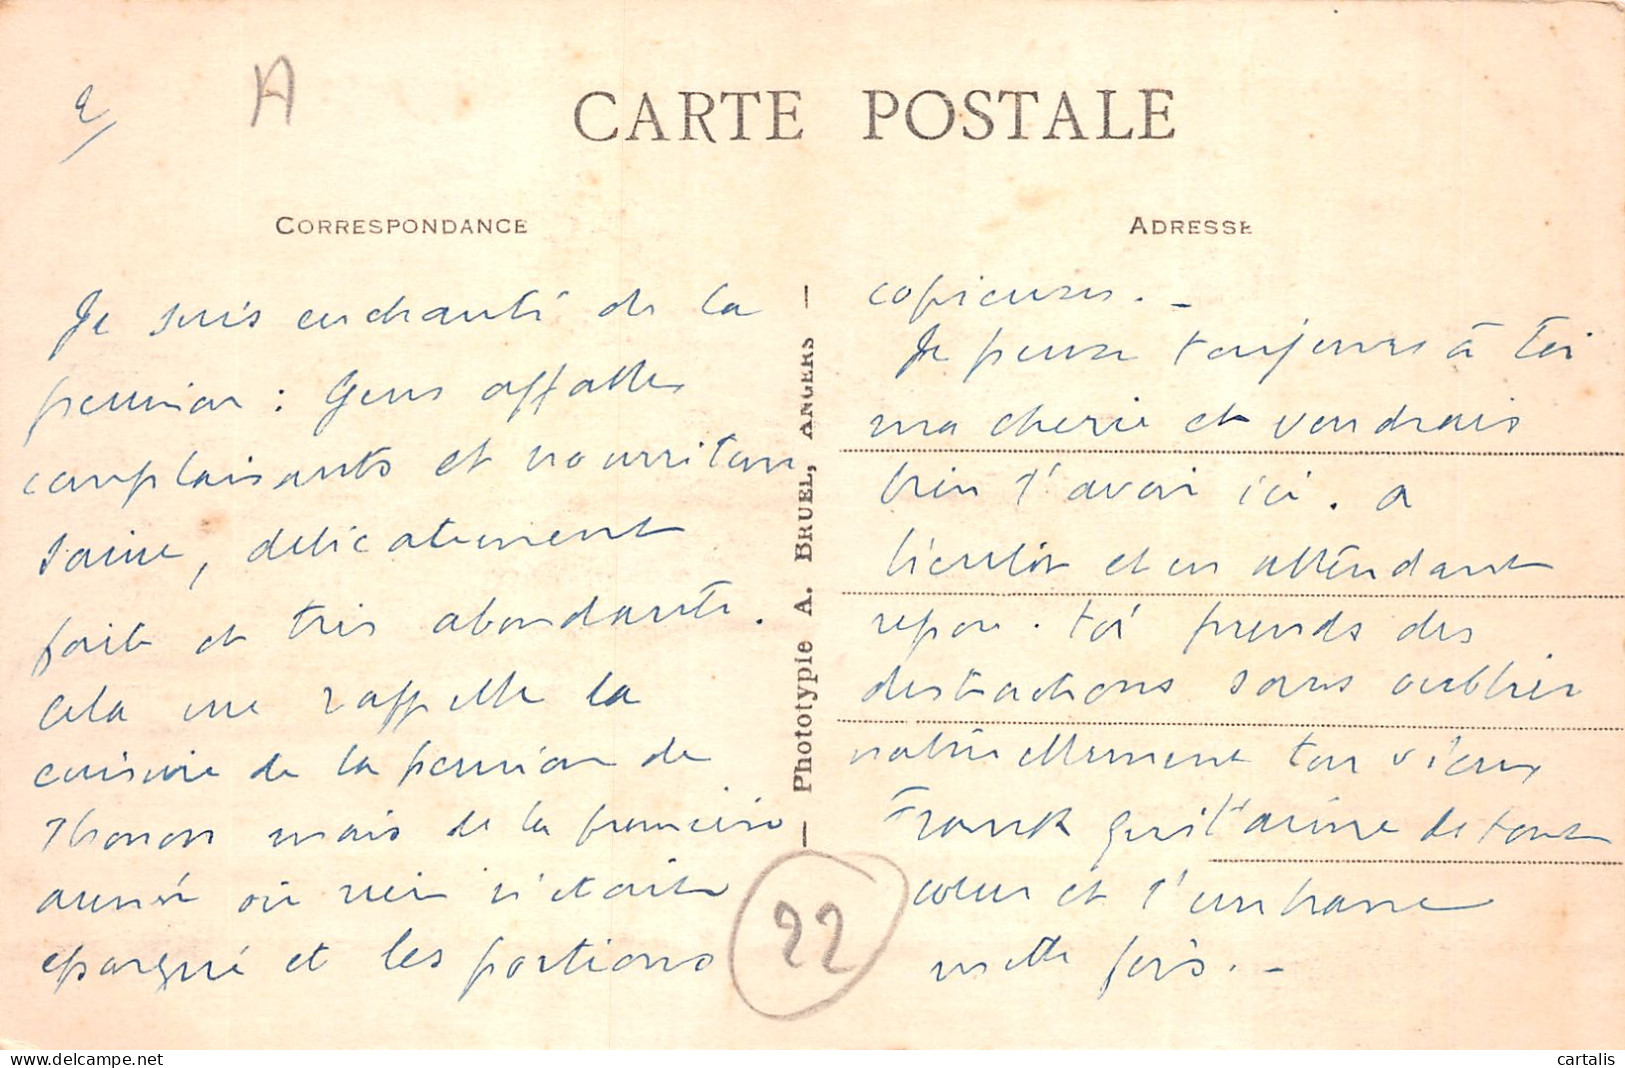 2/
A
CARTE POSTALE
CORRESPONDANCE
ADRESSE
Je suis enchanté de la
pension : Gens affables
complaisants et nourriture
saine, délicatement
faite et très abondante.
Cela me rappelle la
cuisine de la pension de
Thonon mais de la première
année où rien n'était
épargné et les portions
Phototypie A. BRUEL, ANGERS
22
copieuses. -
Je pense toujours à toi
ma cherie et voudrais
bien t'avoir ici. a
bientôt et en attendant
repose-toi prends des
distractions sans oublier
naturellement ton vieux
Franck qui t'aime de tout
cœur et t'embrasse
mille fois. -
www.delcampe.net
cartalis